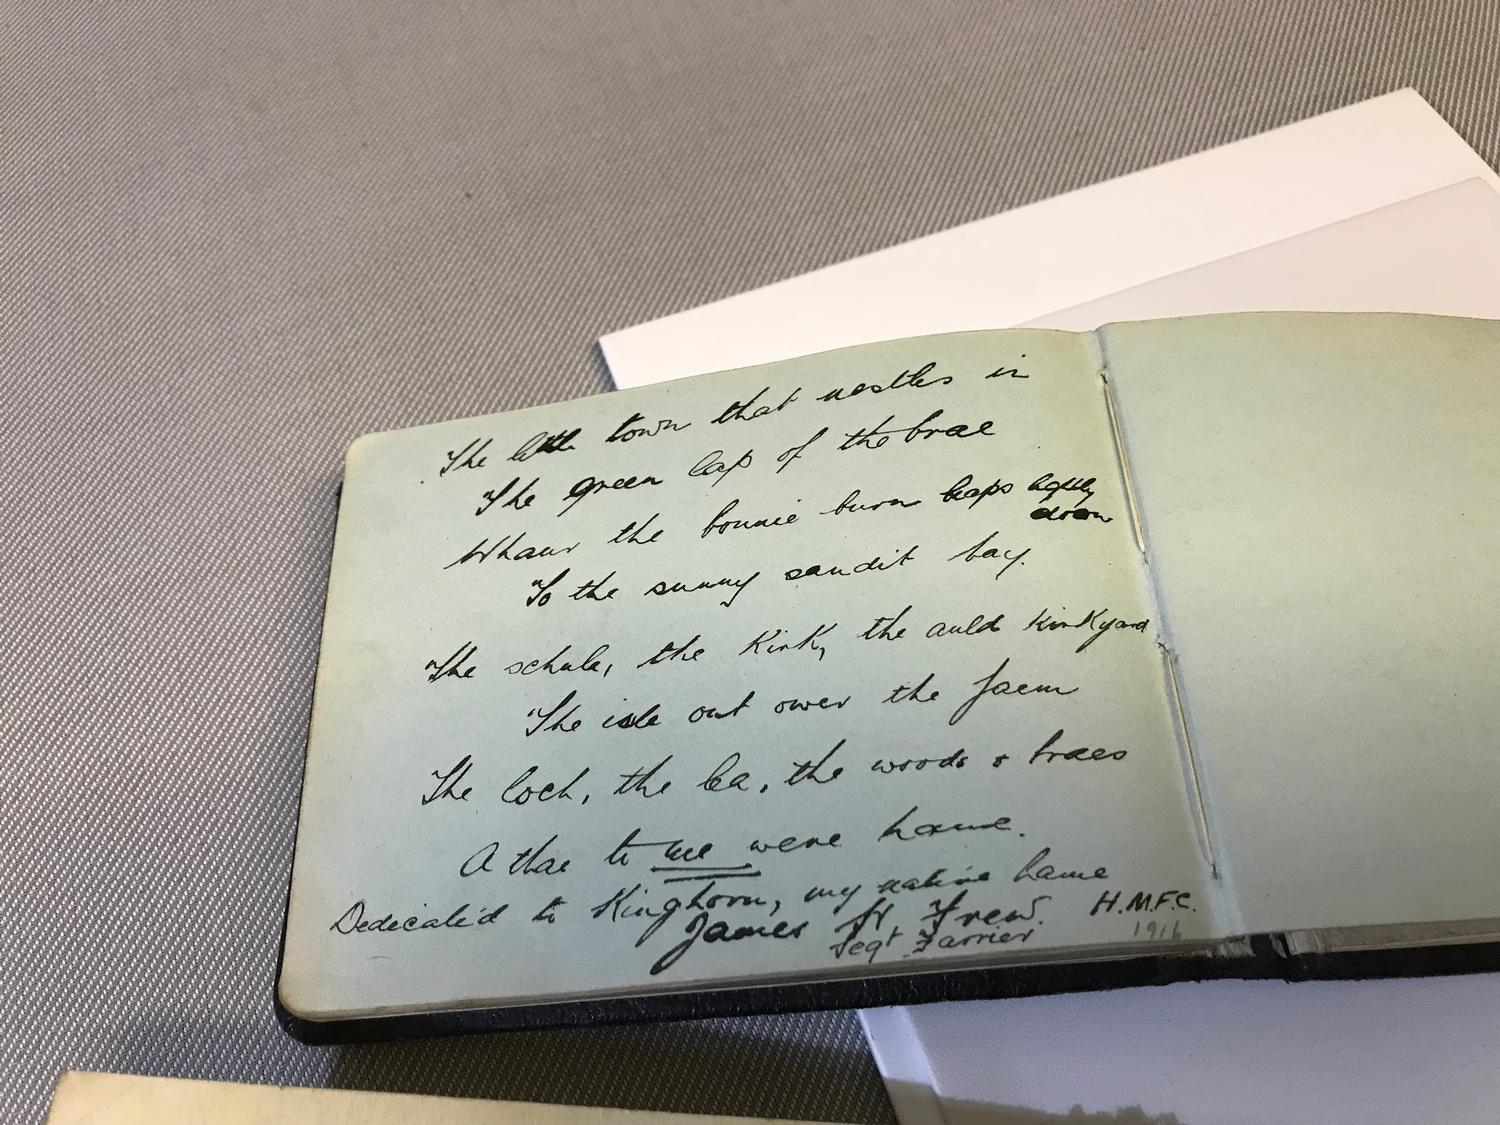 The little town that nestles in
The green lap of the brae
Whaur the bonnie burn leaps lightly
doon
To the sunny sandit bay.
The schule, the Kirk, the auld kirkyard
The isle out ower the faem
The loch, the lea, the woods & braes
A thae to me were hame.
Dedicated to Kinghorn, my native hame
James Frew. H.M.F.C.
Segt Farrier 1916